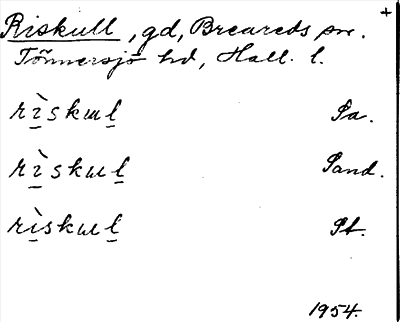 +
Riskull, gd, Breareds sn.
Tönnersjö hd, Hall. l.
rìskɯl Sa.
rìskɯl Sand.
rìskɯl St.
1954.